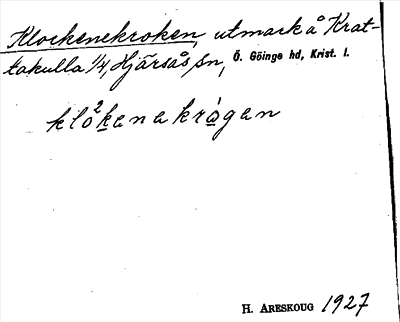 Klockenekroken, utmark å Krat-
takulla 1/4, Hjärsås sn, Ö. Göinge hd, Krist. l.
klo²kenakrågan
H. ARESKOUG 1927